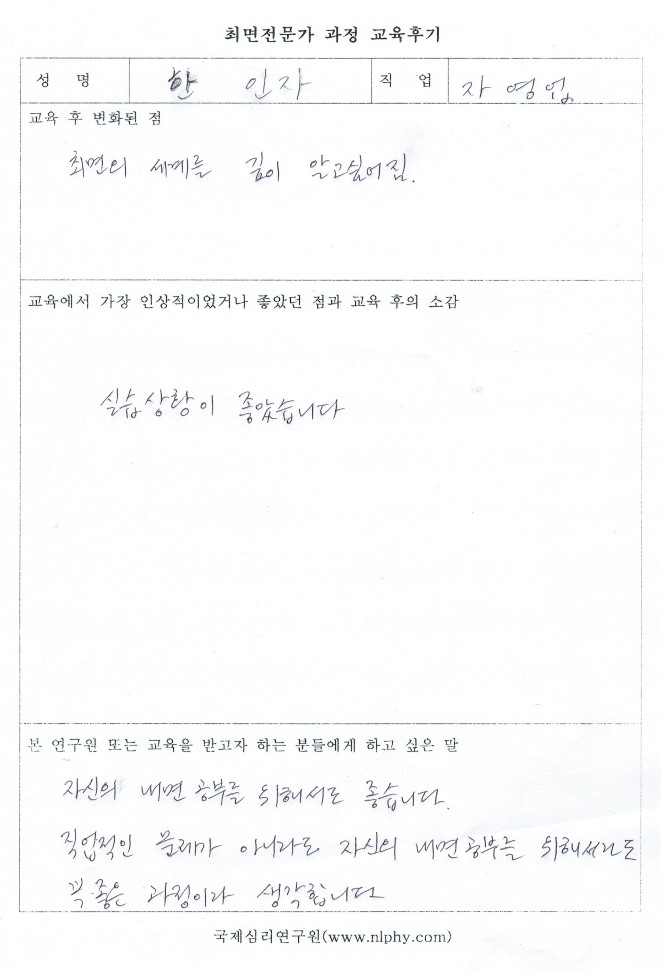 최면전문가 과정 교육후기
성 명 한 인자 직 업 자영업
교육 후 변화된 점
최면의 세계를 깊이 알고싶어짐.
교육에서 가장 인상적이었거나 좋았던 점과 교육 후의 소감
실습상황이 좋았습니다
본 연구원 또는 교육을 받고자 하는 분들에게 하고 싶은 말
자신의 내면 공부를 위해서도 좋습니다.
직업적인 문제가 아니라도 자신의 내면공부를 위해서라도
꼭 좋은 과정이라 생각합니다
국제심리연구원(www.nlphy.com)